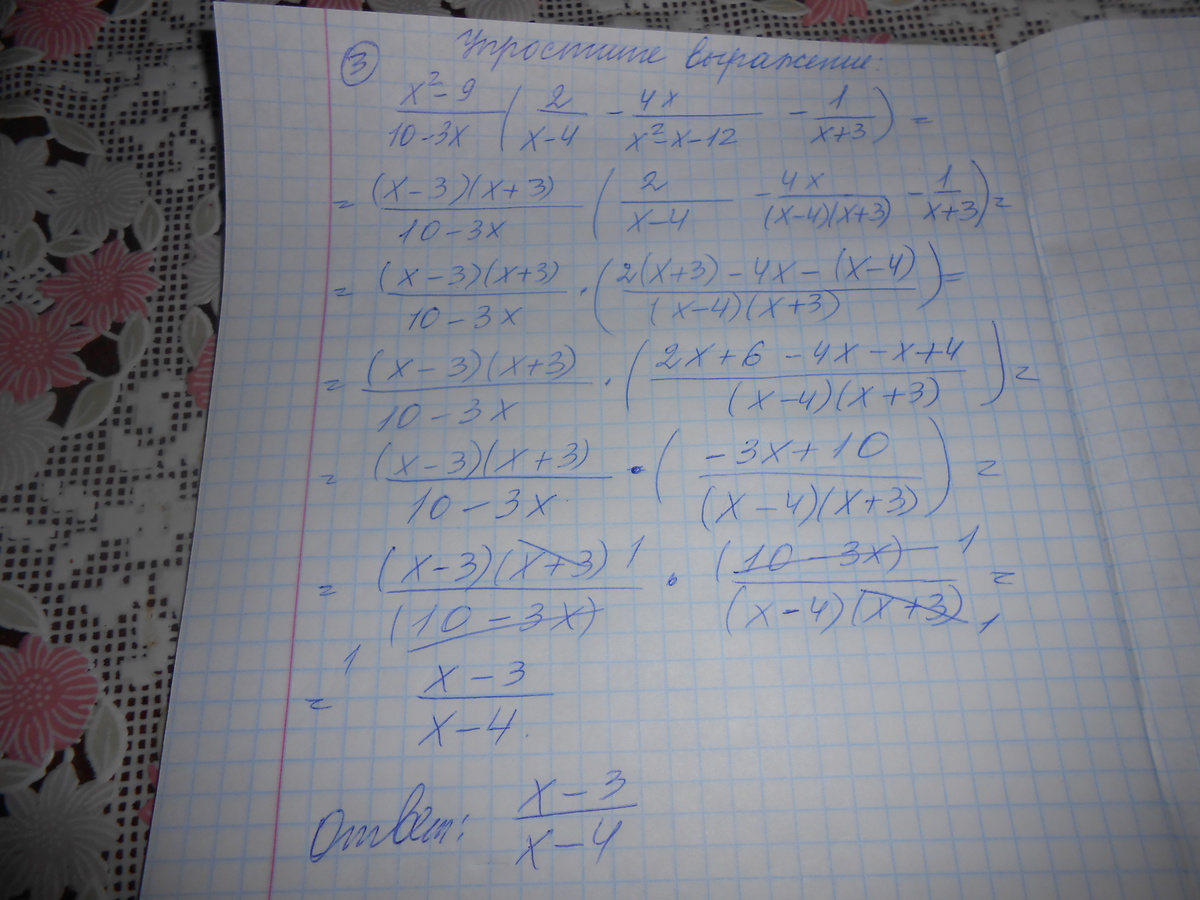 ③ Упростите выражение:
x²-9/10-3x (2/x-4 - 4x/x²-x-12 - 1/x+3) =
= (x-3)(x+3)/10-3x (2/x-4 - 4x/(x-4)(x+3) - 1/x+3) =
= (x-3)(x+3)/10-3x · (2(x+3)-4x-(x-4)/(x-4)(x+3)) =
= (x-3)(x+3)/10-3x · (2x+6-4x-x+4/(x-4)(x+3)) =
= (x-3)(x+3)/10-3x · (-3x+10/(x-4)(x+3)) =
= (x-3)(x+3) 1/(10-3x) 1 · (10-3x) 1/(x-4)(x+3) 1 =
= x-3/x-4.
Ответ: x-3/x-4